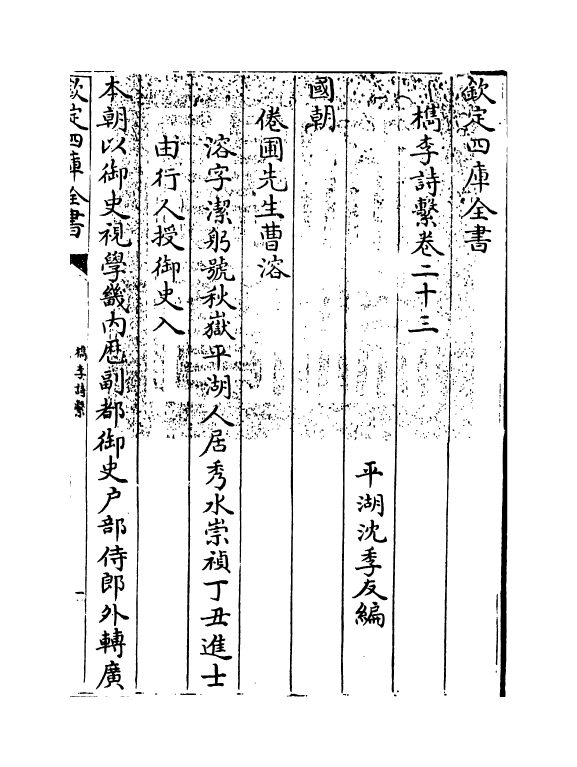 欽定四庫全書
檇李詩繫卷二十三
平湖沈季友編
國朝
倦圃先生曹溶
溶字潔躬號秋嶽平湖人居秀水崇禎丁丑進士
由行人授御史入
本朝以御史視學畿內歷副都御史户部侍郎外轉廣
欽定四庫全書
檇李詩繫
一